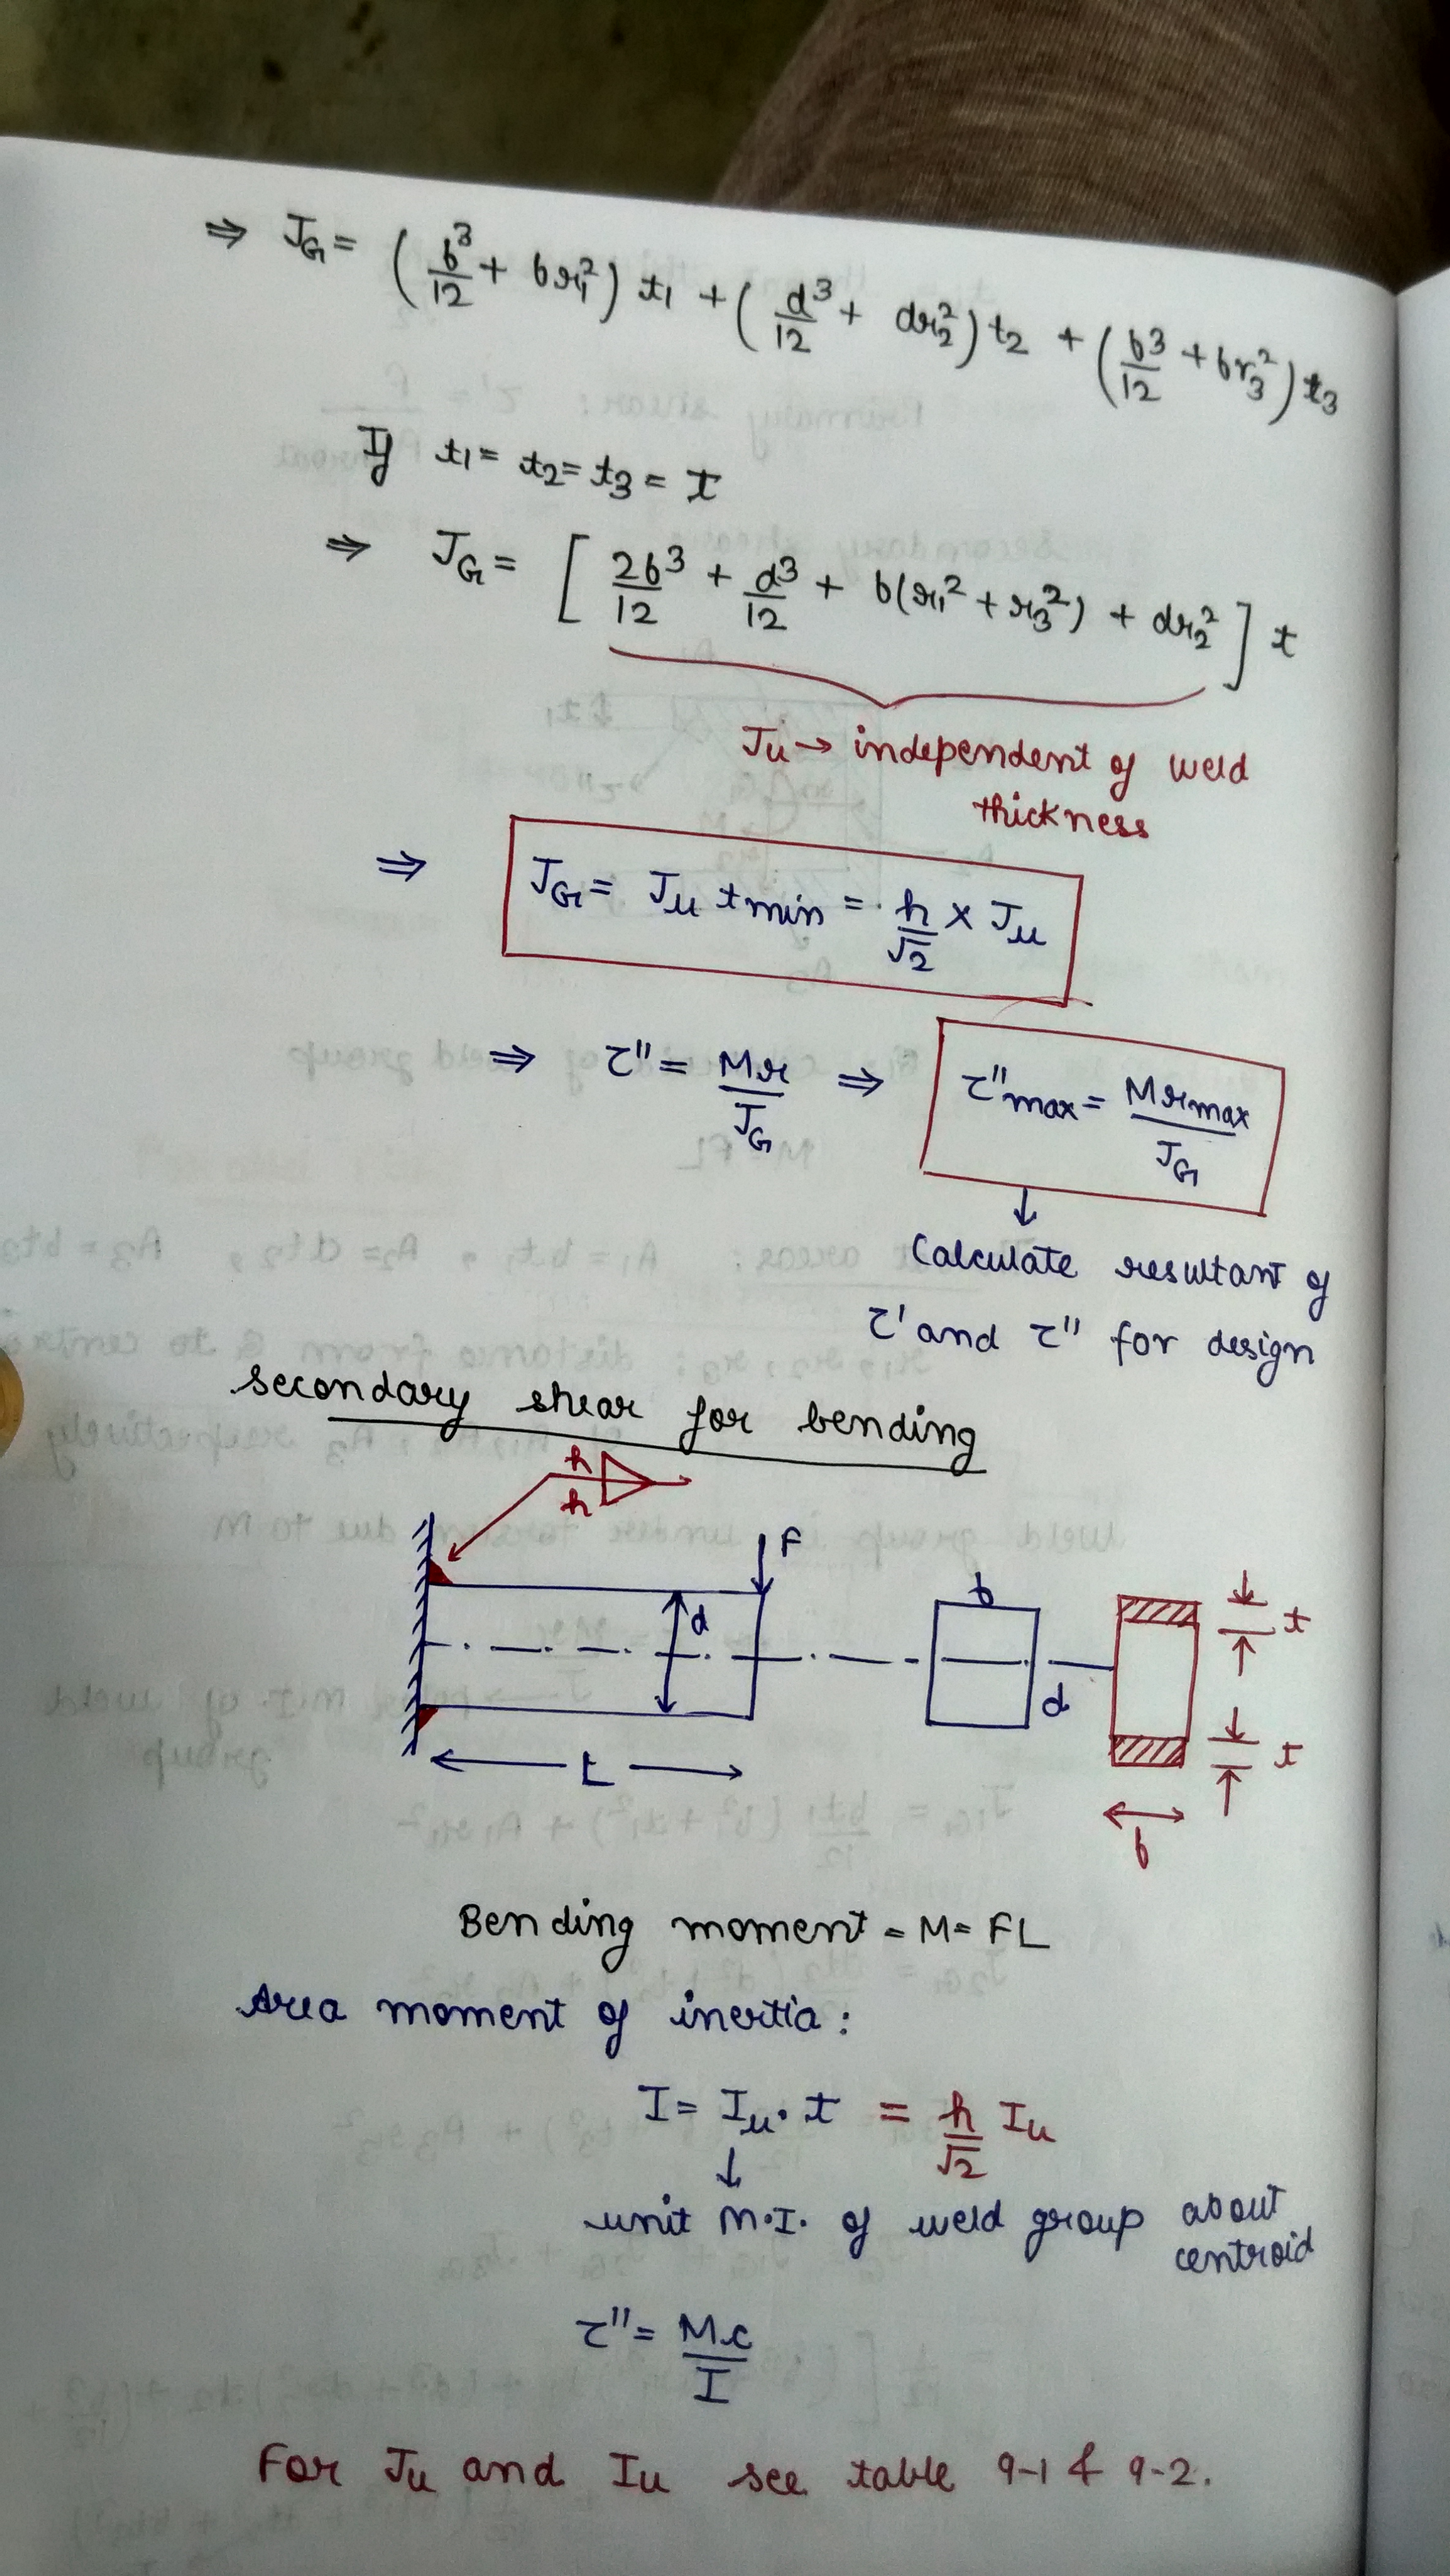 ⇒ J_G = (b³/12 + br₁²) t₁ + (d³/12 + dr₂²) t₂ + (b³/12 + br₃²) t₃
If t₁ = t₂ = t₃ = t
⇒ J_G = [2b³/12 + d³/12 + b(r₁² + r₃²) + dr₂²] t
Ju → independent of weld
thickness
⇒ J_G = Ju tmin = h/√2 × Ju
⇒ τ'' = Mr/J_G ⇒ τ''max = Mrmax/J_G
↓
Calculate resultant of
τ' and τ'' for design
secondary shear for bending
h
h
F
d
b
d
t
t
L
b
Bending moment = M = FL
Area moment of inertia:
I = Iu · t = h/√2 Iu
↓
unit M.I. of weld group about
centroid
τ'' = Mc/I
For Ju and Iu see table 9-1 & 9-2.